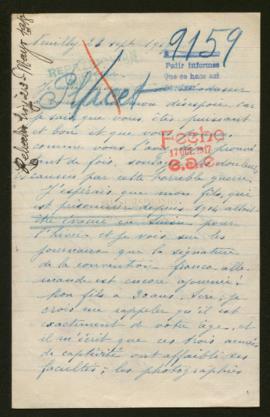 Neuilly 21 sept. 19
9159
Pedir informes
que se hace así
Placet
mon désespoir car
je sais que vous êtes puissant
et bon et que vous
comme vous l'avez
tant de fois, soulager les douleurs
causées par cette horrible guerre.
Fecha
17 1917
J'espérais que mon fils, qui
est prisonnier depuis 1914 allait
être évacué en Suisse pour
l'hiver et je vois sur les
journaux que la signature
de la convention franco-alle
mande est encore ajournée!
Mon fils a 20 ans, Sire; je
crois me rappeler qu'il est
exactement de votre âge, et
il m'écrit que ces trois années
de captivité ont affaibli ses
facultés; les photographies